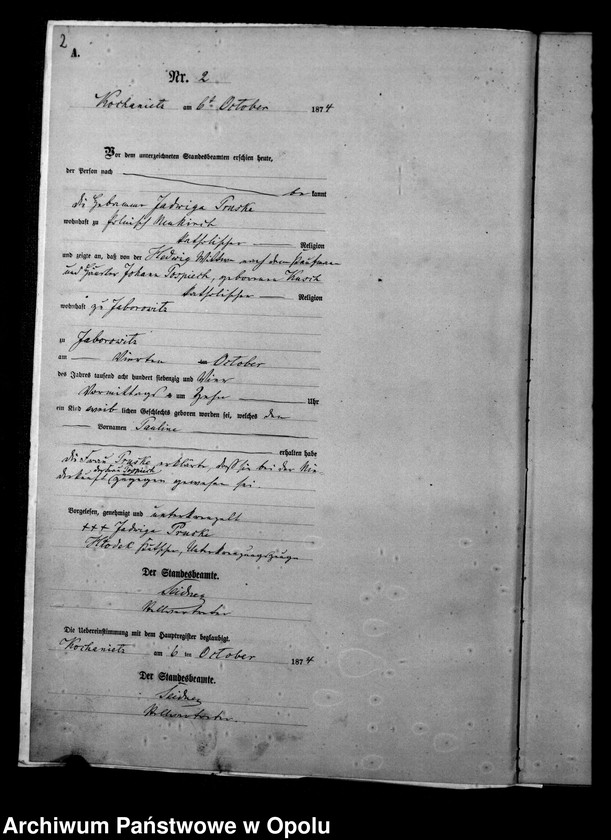 2
A.
Nr. 2
Kochanietz am 6t October 1874
Vor dem unterzeichneten Standesbeamten erschien heute,
der Person nach be kannt
die Hebamme Jadwiga Pruske
wohnhaft zu polnisch Neukirch
katholischer Religion
und zeigte an, daß von der Hedwig Wittwe nach dem
und Johann Pospiech, geborenen
katholischer Religion
wohnhaft zu Jaborowitz
zu Jaborowitz
am Vierten October
des Jahres tausend acht hundert siebenzig und Vier
Vormittags um Zehn Uhr
ein Kind weib lichen Geschlechts geboren worden sei, welches den
Vornamen Pauline
erhalten habe
die Frau Pruske erklärte, daß sie bei der Nie
der Frau Pospiech
derkunft zugegen gewesen sei.
Vorgelesen, genehmigt und unterkreuzt
+++ Jadwiga Pruske
Klodek
Der Standesbeamte.
Seidner
Die Uebereinstimmung mit dem Hauptregister beglaubigt.
Kochanietz am 6 ten October 1874
Der Standesbeamte.
Seidner
Archiwum Państwowe w Opolu